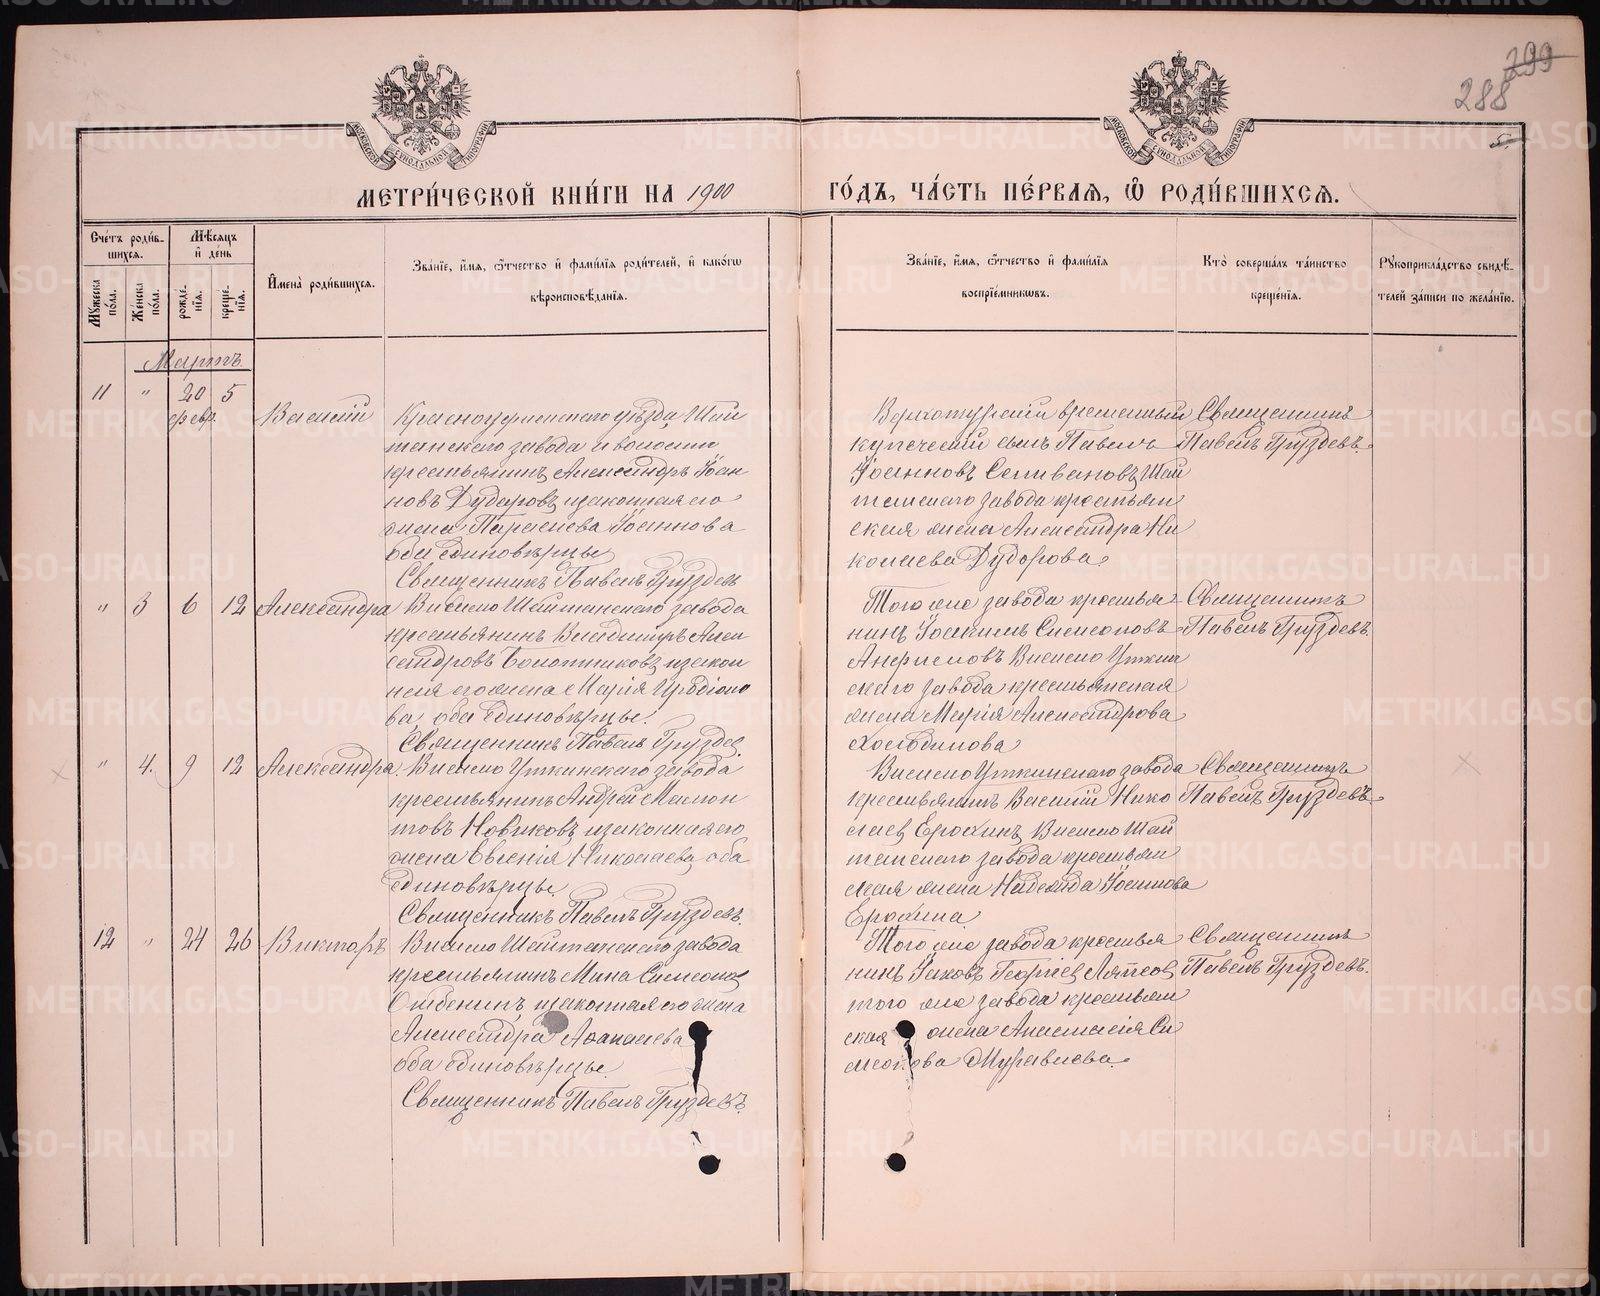 299
288
5.
МОСКОВСКОЙ СУНОДАЛЬНОЙ ТИПОГРАФІИ
МОСКОВСКОЙ СУНОДАЛЬНОЙ ТИПОГРАФІИ
МЕТРИ́ЧЕСКОЙ КНИ́ГИ НА 1900
ГО́ДЪ, ЧА́СТЬ ПЕ́РВАЯ, Ѡ҆ РОДИ́ВШИХСЯ.
Сче́тъ роди́в-
шихся.
Мѣ́сяцъ
и҆ де́нь
Му́жеска по́ла.
Же́нска по́ла.
рожде́-нїя.
креще́-нїя.
И҆мена̀ роди́вшихся.
Зва́нїе, и҆́мя, ѻ҆́тчество и҆ фами́лїя роди́телей, и҆ како́гѡ
вѣроисповѣ́данїя.
Зва́нїе, и҆́мя, ѻ҆́тчество и҆ фами́лїя
воспрїе́мникѡвъ.
Кто̀ соверша́лъ та́инство
креще́нїя.
Рꙋкоприкла́дство свидѣ́-
телей за́писи по жела́нїю.
Мартъ
11 " 20 5
февр. Василій Красноуфимскаго уѣзда Шай
танскаго завода и волости
крестьянинъ Александръ Іоан
новъ Дударовъ и законная его
жена Параскева Іоаннова
оба единовѣрцы
Священникъ Павелъ Груздевъ
Верхотурскій временный
купеческій сынъ Павелъ
Іоанновъ Селивановъ, Шай
танскаго завода крестьян
ская жена Александра Ни
колаева Дударова.
Священникъ
Павелъ Груздевъ.
" 3 6 12 Александра Висимо Шайтанскаго завода
крестьянинъ Владиміръ Алек
сандровъ Болотниковъ и закон
ная его жена Марія Иродіоно
ва, оба единовѣрцы.
Священникъ Павелъ Груздев.
Того же завода крестья
нинъ Іоакимъ Симеоновъ
Анфиловъ Висимо Уткин
скаго завода крестьянская
жена Марія Александрова
Священникъ
Павелъ Груздевъ.
" 4. 9 12 Александра. Висимо Уткинскаго завода
крестьянинъ Андрей Мамон
товъ Новиковъ и законная его
жена Евгенія Николаева, оба
единовѣрцы.
Священникъ Павелъ Груздевъ.
Висимо Уткинскаго завода
крестьянинъ Василій Нико
лаев Ерохинъ, Висимо Шай
танскаго завода крестьян
ская жена Надежда Іоаннова
Ерохина
Священникъ
Павелъ Груздевъ.
12 " 24 26 Викторъ Висимо Шайтанскаго завода
крестьянинъ Мина Симеонов
и законная его жена
Александра Аѳанасіева
оба единовѣрцы.
Священникъ Павелъ Груздевъ.
Того же завода крестья
нинъ Іаковъ Георгіев
того же завода крестьян
ская жена Анастасія Си
меонова Муравьева.
Священникъ
Павелъ Груздевъ.
METRIKI.GASO-URAL.RU